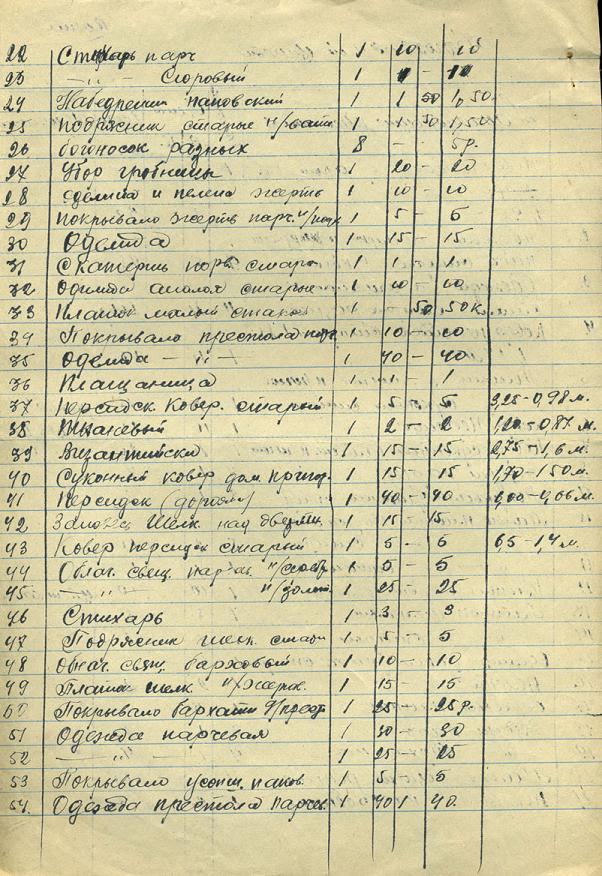 22 Стихарь парч 1 10 10
23 —"— 1 — 10
24 Набедрении 1 1 50 1,50
25 Подрясник старые н/вати 1 1 50 1,50
26 богоносок разных 8 — — 5р.
27 гробницы 1 20 — 20
28 и пелена жертв 1 10 — 10
29 Покрывало жертв парч. 1 5 — 5
30 Одежда 1 15 — 15
31 Скатерть стар 1 1 — 1
32 аналоя старые 1 10 10
33 Платок малый 1 50 50 к.
34 Покрывало престола 1 10 — 10
35 Одежда —"— 1 40 — 40
36 Плащаница 1 1 — 1
37 Персидск Ковер. старый 1 5 — 5 3,25-0,98 м.
38 1 2 — 2 1,20-0,87 м.
39 Византийски 1 15 — 15 2,75-1,6 м.
40 Суконный ковер дом. 1 15 — 15 1,70-1,50 м.
41 Персидск 1 40 — 40
42 шелк. над 1 15 15
43 Ковер персидск старый 1 5 — 5 6,5-1,4 м.
44 Облач. свящ. 1 5 — 5
45 —"— 1 25 — 25
46 Стихарь 1 3 3
47 Подрясник шелк. 1 5 5
48 Облач. свящ. 1 10 — 10
49 Платок шелк 1 15 — 15
50 Покрывало 1 25 — 25р.
51 Одежда парчевая 1 30 — 30
52 —"— 1 25 — 25
53 Покрывало 1 5 — 5
54. Одежда престола парчев. 1 40 40